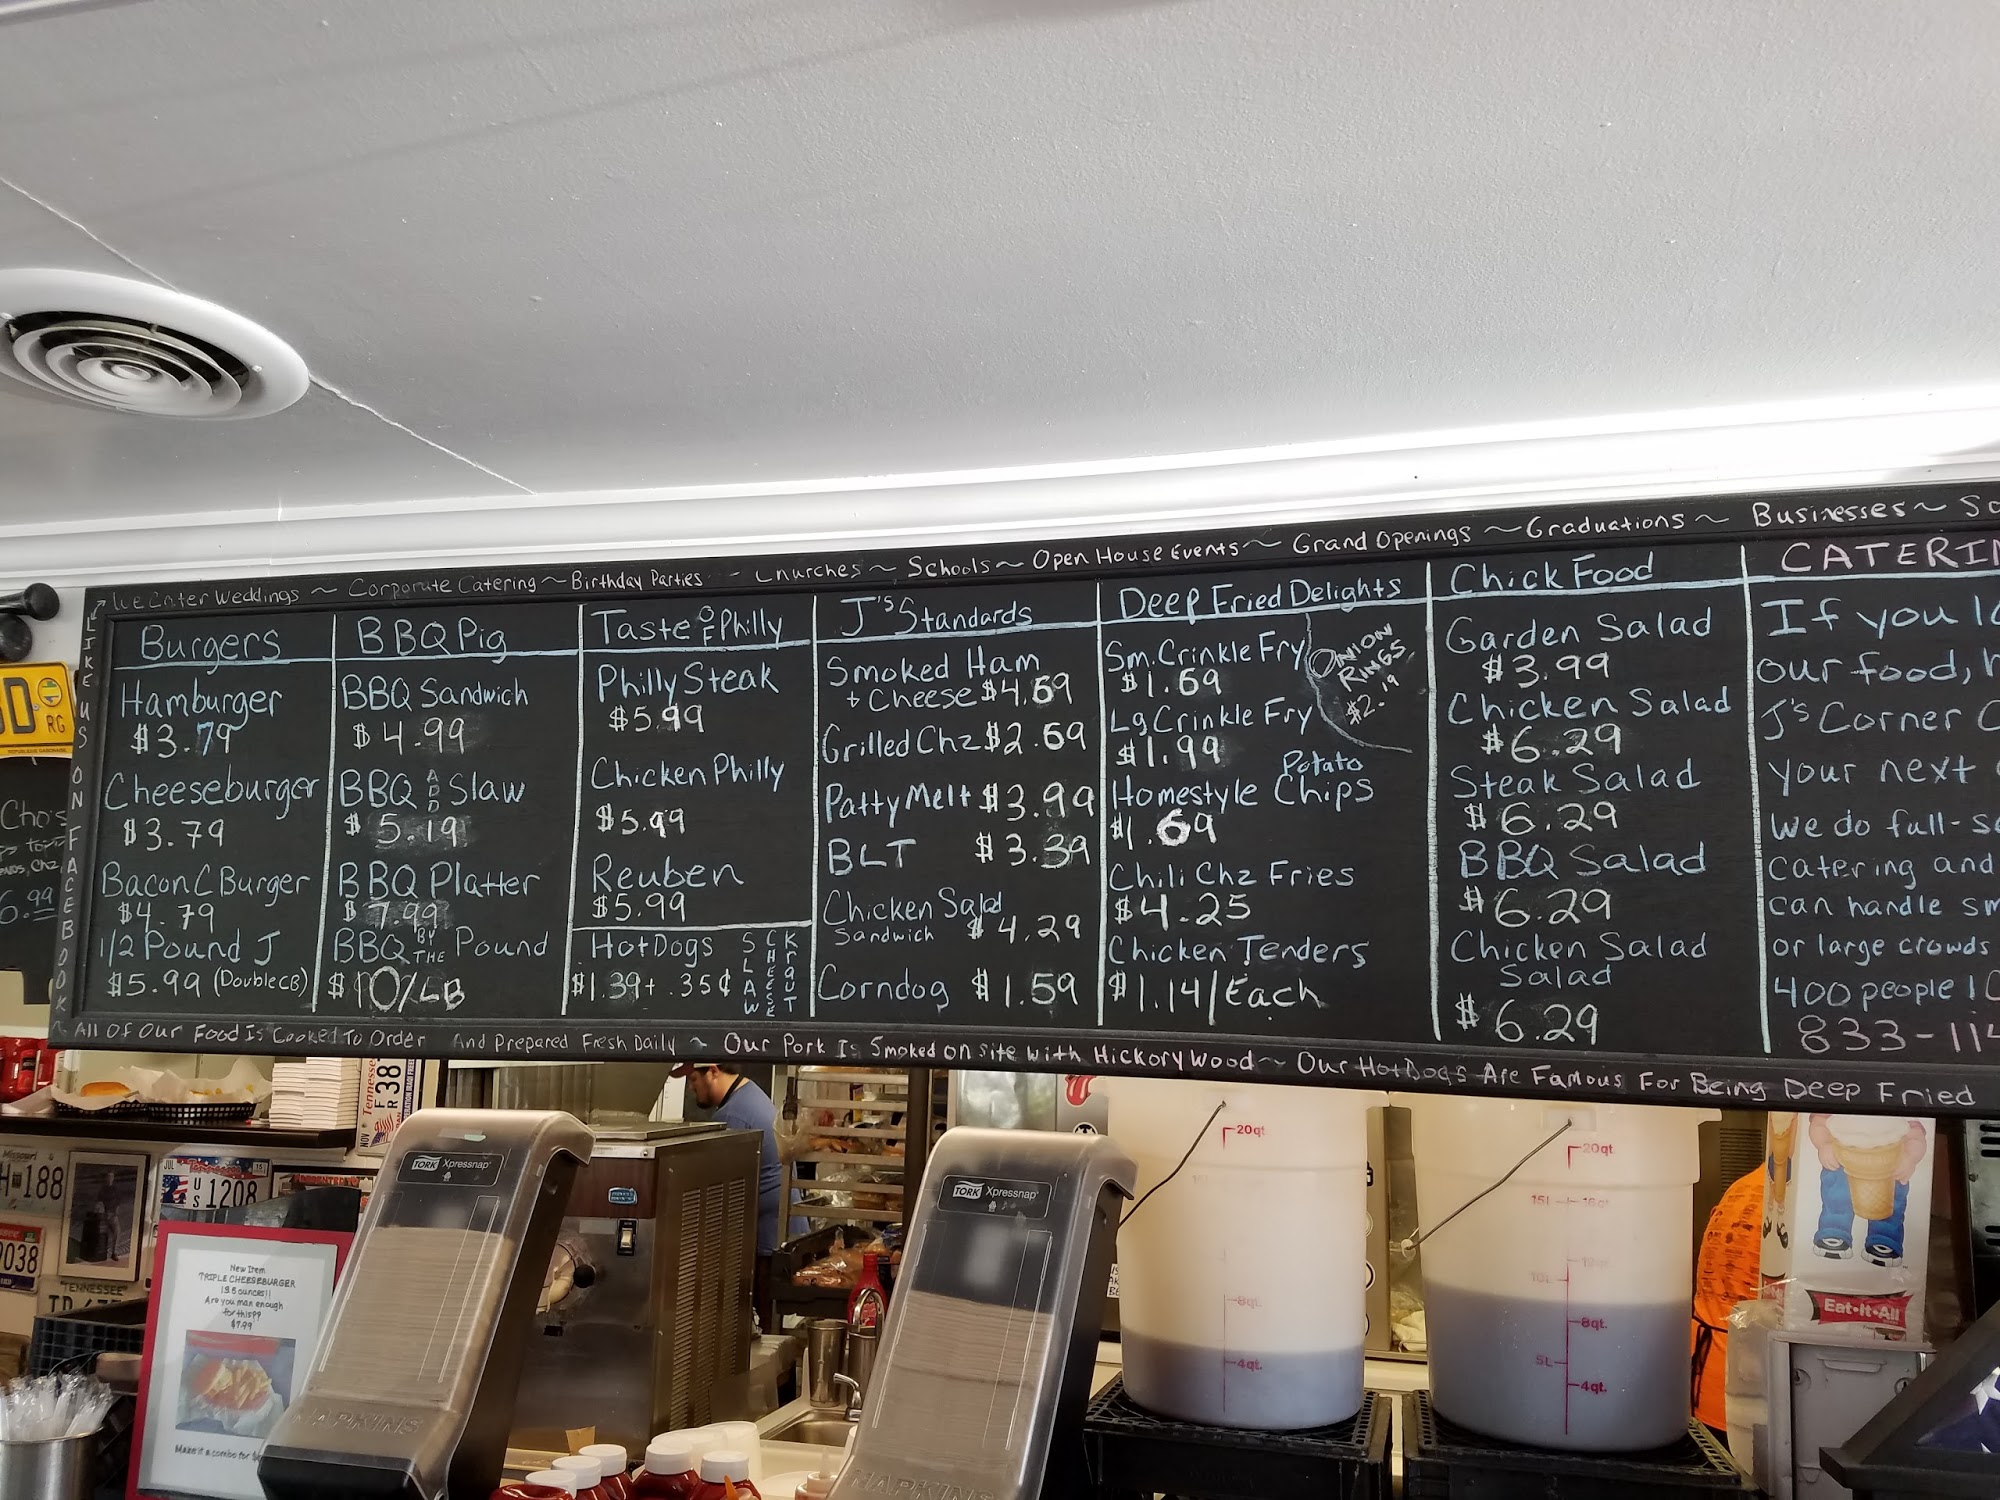 We Cater Weddings ~ Corporate Catering ~ Birthday Parties - Churches ~ Schools ~ Open House Events ~ Grand Openings ~ Graduations ~ Businesses ~
LIKE US ON FACEBOOK
Burgers
Hamburger
$3.79
Cheeseburger
$3.79
Bacon C Burger
$4.79
1/2 Pound J
$5.99 (Double CB)
BBQ Pig
BBQ Sandwich
$4.99
BBQ ADD Slaw
$5.19
BBQ Platter
$7.99
BBQ BY THE Pound
$10/LB
Taste OF Philly
Philly Steak
$5.99
Chicken Philly
$5.99
Reuben
$5.99
Hot Dogs
$1.39 + .35¢
SLAW
CHEESE
KRAUT
J's Standards
Smoked Ham
+ Cheese $4.69
Grilled Chz $2.69
Patty Melt $3.99
BLT $3.39
Chicken Salad
Sandwich $4.29
Corndog $1.59
Deep Fried Delights
Sm. Crinkle Fry
$1.69
ONION
RINGS
$2.19
Lg Crinkle Fry
$1.99
Potato
Homestyle Chips
$1.69
Chili Chz Fries
$4.25
Chicken Tenders
$1.14/Each
Chick Food
Garden Salad
$3.99
Chicken Salad
$6.29
Steak Salad
$6.29
BBQ Salad
$6.29
Chicken Salad
Salad
$6.29
CATERIN
If you lo
our food, h
J's Corner C
your next
We do full-se
catering and
can handle sm
or large crowds
400 people!
833-114
~ All Of Our Food Is Cooked To Order And Prepared Fresh Daily ~ Our Pork Is Smoked on site with Hickory Wood ~ Our Hot Dogs Are Famous For Being Deep Fried
RG
6.99
Tennessee
F38
NOV
H-188
JUL Tennessee 15
US 1208
9038
TENNESSEE
New Item
TRIPLE CHEESEBURGER
13.5 ounces!!
Are you man enough
for this??
$7.99
Make it a combo for
TORK Xpressnap
NAPKINS
TORK Xpressnap
NAPKINS
20qt.
8qt.
4qt.
20qt.
15L 16qt.
12qt.
10L
8qt.
5L
4qt.
Eat-It-All